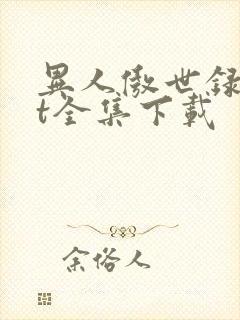 異人傲世録
t全集下載
余俗人